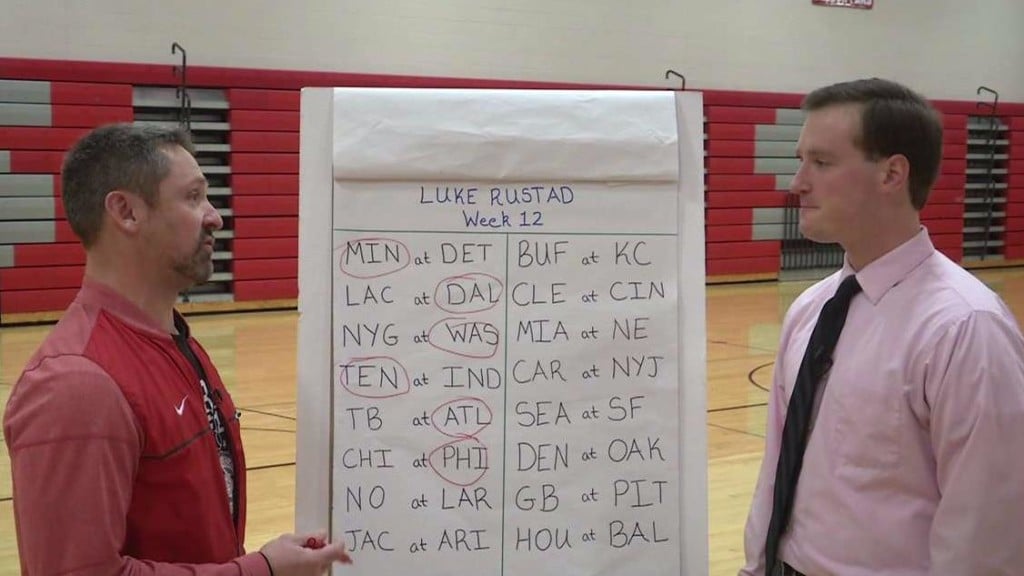 LUKE RUSTAD
Week 12
MIN at DET
LAC at DAL
NYG at WAS
TEN at IND
TB at ATL
CHI at PHI
NO at LAR
JAC at ARI
BUF at KC
CLE at CIN
MIA at NE
CAR at NYJ
SEA at SF
DEN at OAK
GB at PIT
HOU at BAL